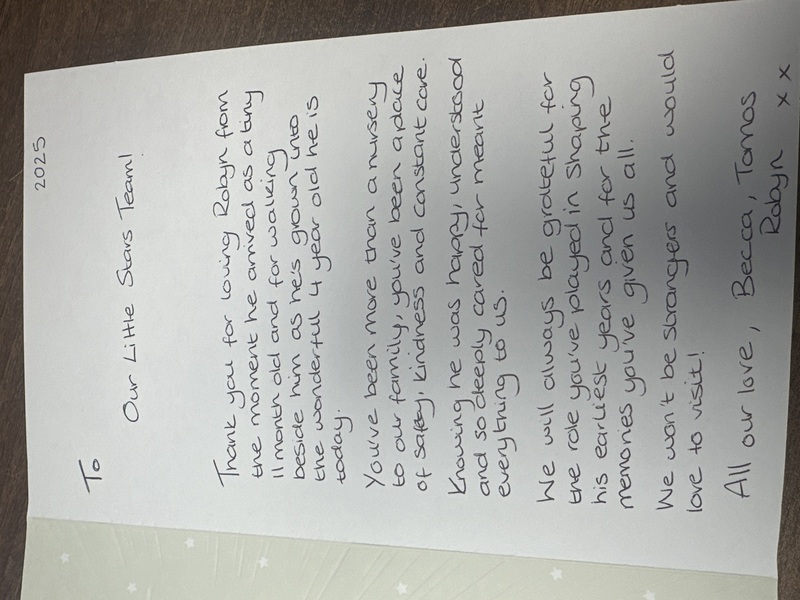 2025
To
Our Little Stars Team!
Thank you for loving Robyn from
the moment he arrived as a tiny
11 month old and for walking
beside him as he's grown into
the wonderful 4 year old he is
today.
You've been more than a nursery
to our family, you've been a place
of safety, kindness and constant care.
Knowing he was happy, understood
and so deeply cared for meant
everything to us.
We will always be grateful for
the role you've played in shaping
his earliest years and for the
memories you've given us all.
We won't be strangers and would
love to visit!
All our love, Becca, Tomos
Robyn x x